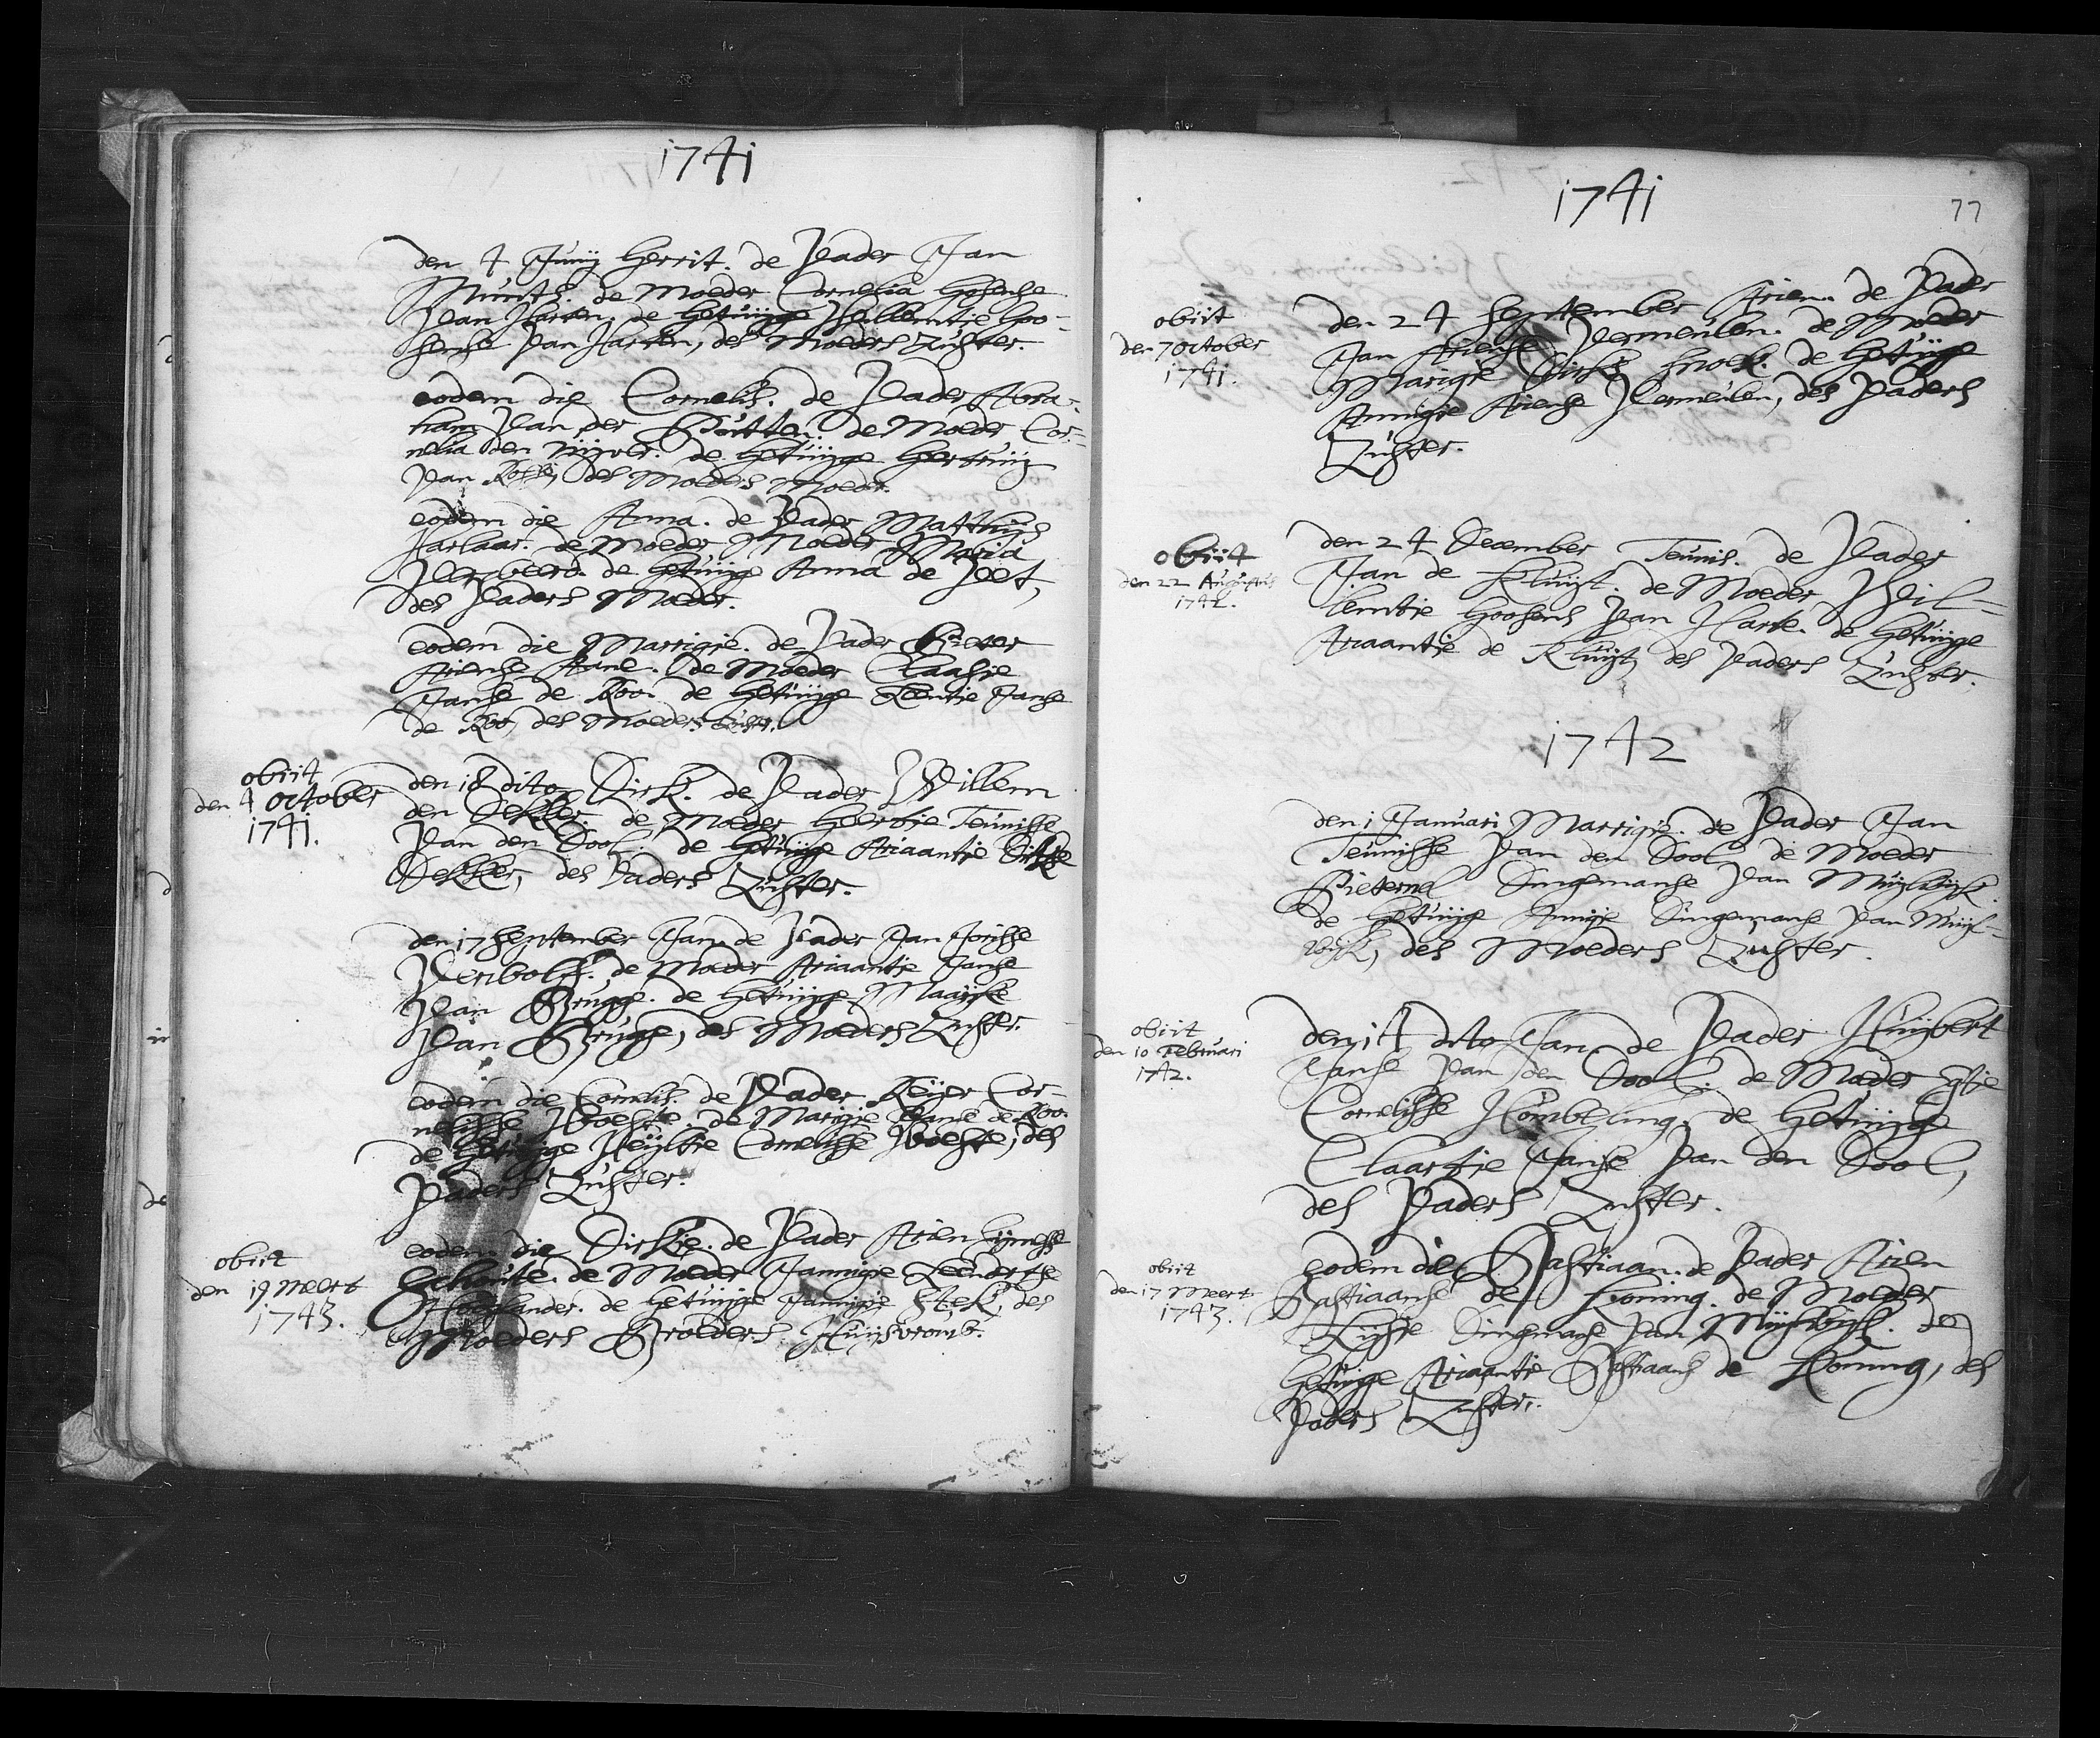 1741
den 4 Junij Gerrit. de Vader Jan
de Moeder Cornelia Goosense
Van Harten, de Getuijge Willemtie Goo-
sense Van Harten, des Moeders Zuster.
eodem die Cornelis. de Vader Abra-
ham Van der Putten. de Moeder Cor-
nelia den de Getuijge Geertruij
Van des Moeders Moeder.
eodem die Anna. de Vader Matthijs
Harlaar. de Moeder Moeder Maria
de Getuijge Anna de
des Vaders Moeder.
eodem die Marrigje. de Vader Pieter
Ariense de Moeder Claasje
Janse de Koo. de Getuijge Leentie Janse
de Koo, des Moeders Zuster.
obiit
den 4 October
1741.
den 18 dito Dirk. de Vader Willem
den Dekker. de Moeder Geertje Teunisse
Van den Dool. de Getuijge Ariaantje
Dekker, des Vaders Zuster.
den 17 September Jan. de Vader Jan Jorisse
Verbolf. de Moeder Ariaantje Janse
Van Brugge. de Getuijge Maaijke
Van Brugge, des Moeders Zuster.
eodem die Cornelis. de Vader Reijer Cor-
nelisse de Marigje Janse de Koo.
de Getuijge Neijltie Cornelisse des
Vaders Zuster.
obiit
den 19 Meert
1743.
eodem die Dirkje. de Vader Arien
Schoute. de Moeder Jannigje Leenderse
Hooglander. de Getuijge Jannigje Stek, des
Moeders Broeders Huijsvrouw.
1741
77
obiit
den 7 October
1741.
den 24 September Arien. de Vader
Jan Ariense Vermeulen. de Moeder
Marigje Dirks Snoek. de Getuijge
Annigje Ariense Vermeulen, des Vaders
Zuster.
obiit
den 22 Augustus
1742.
den 24 December Teunis. de Vader
Jan de Kluijt. de Moeder Wil=
lemtie Goosens Van Harte. de Getuijge
Ariaantje de Kluijt, des Vaders Zuster.
1742
den 1 Januari Marrigje. de Vader Jan
Teunisse Van den Dool de Moeder
Pieternel Dingemanse Van Muijlwijk.
de Getuijge Annigje Dingemanse Van Muijl-
wijk, des Moeders Zuster.
obiit
den 10 Februari
1742.
den 14 dito Jan. de Vader Huijbert
Janse Van den Dool. de Moeder
Cornelisse Hombeling. de Getuijge
Claartje Janse Van den Dool,
des Vaders Zuster.
obiit
den 17 Meert
1743.
eodem die Bastiaan. de Vader Arien
Bastiaanse de Koning. de Moeder
Lijsje Dingemanse Van Muijlwijk. de
Getuijge Ariaantje Bastiaans de Koning, des
Vaders Zuster.